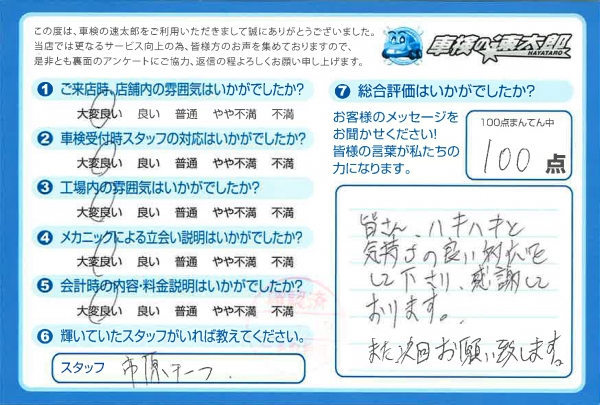 この度は、車検の速太郎をご利用いただきまして誠にありがとうございました。
当店では更なるサービス向上の為、皆様方のお声を集めておりますので、
是非とも裏面のアンケートにご協力、返信の程よろしくお願い申し上げます。
車検の速太郎
HAYATARO
1 ご来店時、店舗内の雰囲気はいかがでしたか?
大変良い 良い 普通 やや不満 不満
2 車検受付時スタッフの対応はいかがでしたか?
大変良い 良い 普通 やや不満 不満
3 工場内の雰囲気はいかがでしたか?
大変良い 良い 普通 やや不満 不満
4 メカニックによる立会い説明はいかがでしたか?
大変良い 良い 普通 やや不満 不満
5 会計時の内容・料金説明はいかがでしたか?
大変良い 良い 普通 やや不満 不満
6 輝いていたスタッフがいれば教えてください。
スタッフ 市原チーフ.
確認済
7 総合評価はいかがでしたか?
お客様のメッセージを
お聞かせください!
皆様の言葉が私たちの
力になります。
100点まんてん中
100 点
皆さん、ハキハキと
気持ちの良い対応を
して下さり、感謝して
おります。
また次回お願い致します。